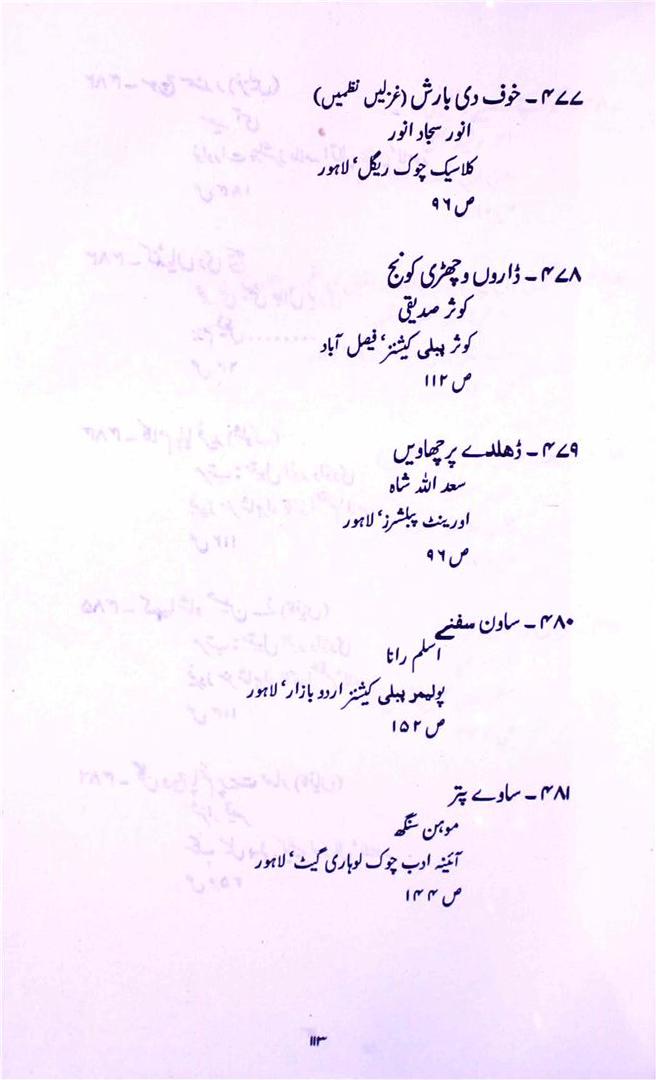 ۴۷۷ - خوف دی بارش (غزلیں نظمیں)
انور سجاد انور
کلاسیک چوک ریگل، لاہور
ص ۹۶
۴۷۸ - ڈاروں وچھڑی کونج
کوثر صدیقی
کوثر پبلی کیشنز، فیصل آباد
ص ۱۱۲
۴۷۹ - ڈھلدے پرچھاویں
سعد اللہ شاہ
اورینٹ پبلشرز، لاہور
ص ۹۶
۴۸۰ - ساون سفنے
اسلم رانا
پولیمر پبلی کیشنز اردو بازار، لاہور
ص ۱۵۲
۴۸۱ - ساوے پتر
موہن سنگھ
آئینہ ادب چوک لوہاری گیٹ، لاہور
ص ۱۴۴
۱۱۳